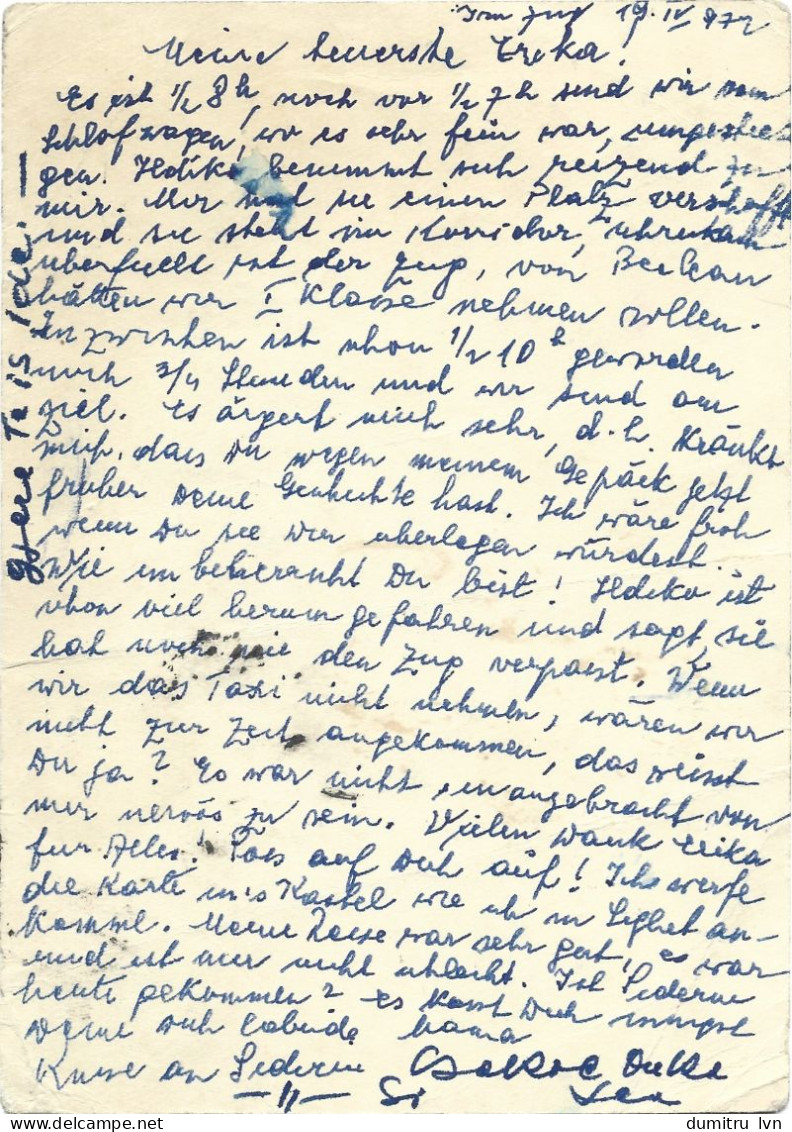 Im Zug 19. IV 972
Meine teuerste Erika!
Es ist 1/2 8 h, noch vor 1/2 7 h sind wir vom
Schlafwagen, wo es sehr fein war, umgestie-
gen. Ildiko benimmt sich reizend zu
mir. Mir hat sie einen Platz verschafft
und sie steht im Korridor,
überfüllt ist der Zug, von
hätten wir I Klasse nehmen sollen.
Inzwischen ist schon 1/2 10 h geworden
noch 3/4 Stunden und wir sind am
Ziel. Es ärgert mich sehr, d.h. kränkt
mich, dass Du wegen meinem Gepäck jetzt
früher Deine Geschichte hast. Ich wäre froh
wenn Du sie Dir überlegen würdest.
Wie unbeherrscht Du bist! Ildiko ist
schon viel herumgefahren und sagt, sie
hat noch nie den Zug verpasst. Wenn
wir das Taxi nicht nehmen, wären wir
nicht zur Zeit angekommen, das weisst
Du ja? Es war nicht unangebracht von
mir nervös zu sein. Vielen Dank Erika
für Alles! Pass auf Dich auf! Ich werfe
die Karte in's Kastel wie ich in Sighet an-
komme. Meine Reise war sehr gut, es war
und ist mir nicht schlecht. Ist
heute gekommen? Es küsst Dich innigst
Deine Dich liebende Mama
Küsse an
— " — Si
Gyere Te is ide! —
dumitru lvn